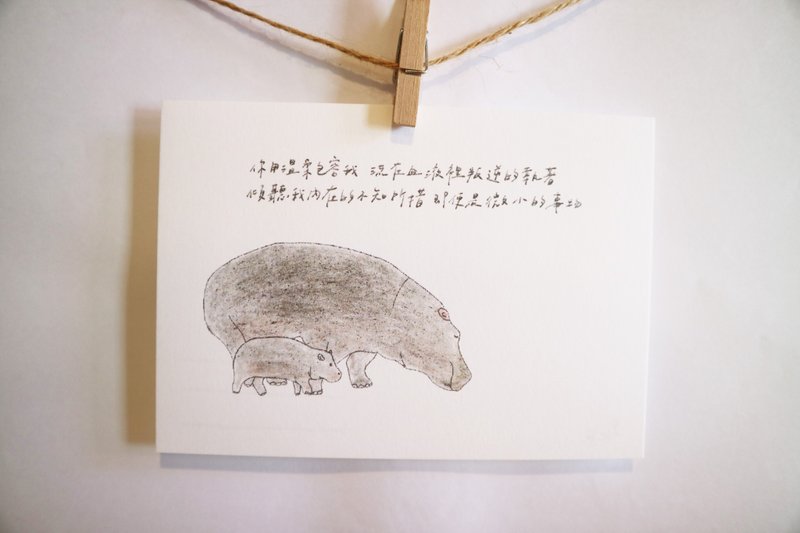 你用溫柔包容我 流在血液裡叛逆的執著
傾聽我內在的不知所措 即便是微小的事物